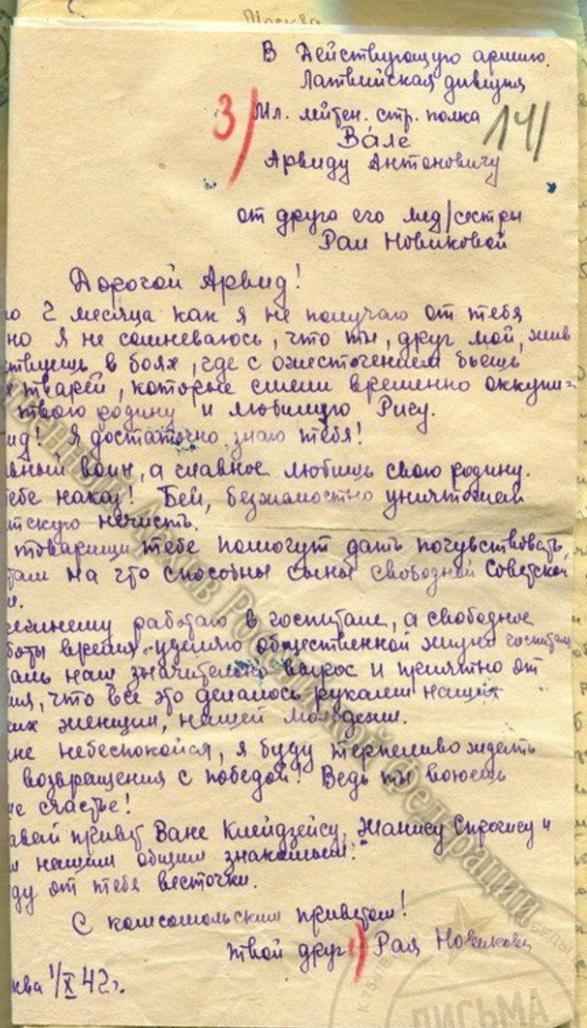 Москва
В Действующую армию.
Латвийская дивизия
3) Мл. лейтен. стр. полка 141
Вале
Арвиду Антоновичу
от друга его мед/сестры
Раи Новиковой
Дорогой Арвид!
о 2 месяца как я не получаю от тебя
но я не сомневаюсь, что ты, друг мой, жив
ствуешь в боях, где с ожесточением бьешь
х тварей, которые смели временно оккупи-
твою родину и любимую Ригу.
ид! Я достаточно знаю тебя!
вный воин, а главное любишь свою родину.
ебе наказ! Бей, безжалостно уничтожай
тскую нечисть.
товарищи тебе помогут дать почувствовать,
там на что способны сыны свободной Советской
и.
режнему работаю в госпитале, а свободное
боты время уделяю общественной жизни госпиталя
аль наш значительно вырос и приятно от
ия, что все это делалось руками наших
их женщин, нашей молодежи.
не небеспокойся, я буду терпеливо ждать
возвращения с победой! Ведь ты воюешь
е счастье!
авай привет Ване Клейдзейсу, Жанису Спрогису и
м нашим общим знакомым.
ду от тебя весточки.
С комсомольским приветом!
твой друг Рая Новикова
ква 1/X 42 г.
венный Архив Российской Федерации
ПИСЬМА
ПОБЕДЫ